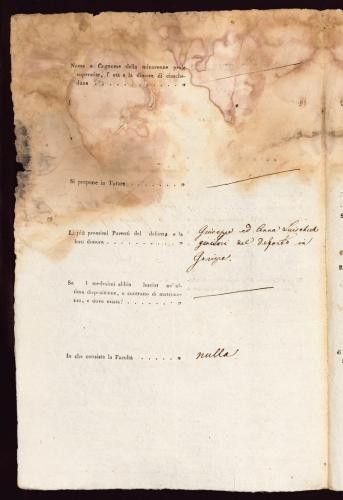 Nome e Cognome della minorenne prole
superstite, l' età e la dimora di ciasche-
duna . . . . . . . . . . . . . . . »
Si propone in Tutore . . . . . . . . . »
Li più prossimi Parenti del defonto e la
loro dimora . . . . . . . . . . . . »
Giuseppe ed Anna
genitori del deponto in
Gorizia.
Se i medesimi abbia lasciat un' ul-
tima disposizione, o contratto di matrimo-
nio, e dove esista? . . . . . . . . . »
In che consista la Facoltà . . . . . . »
nulla